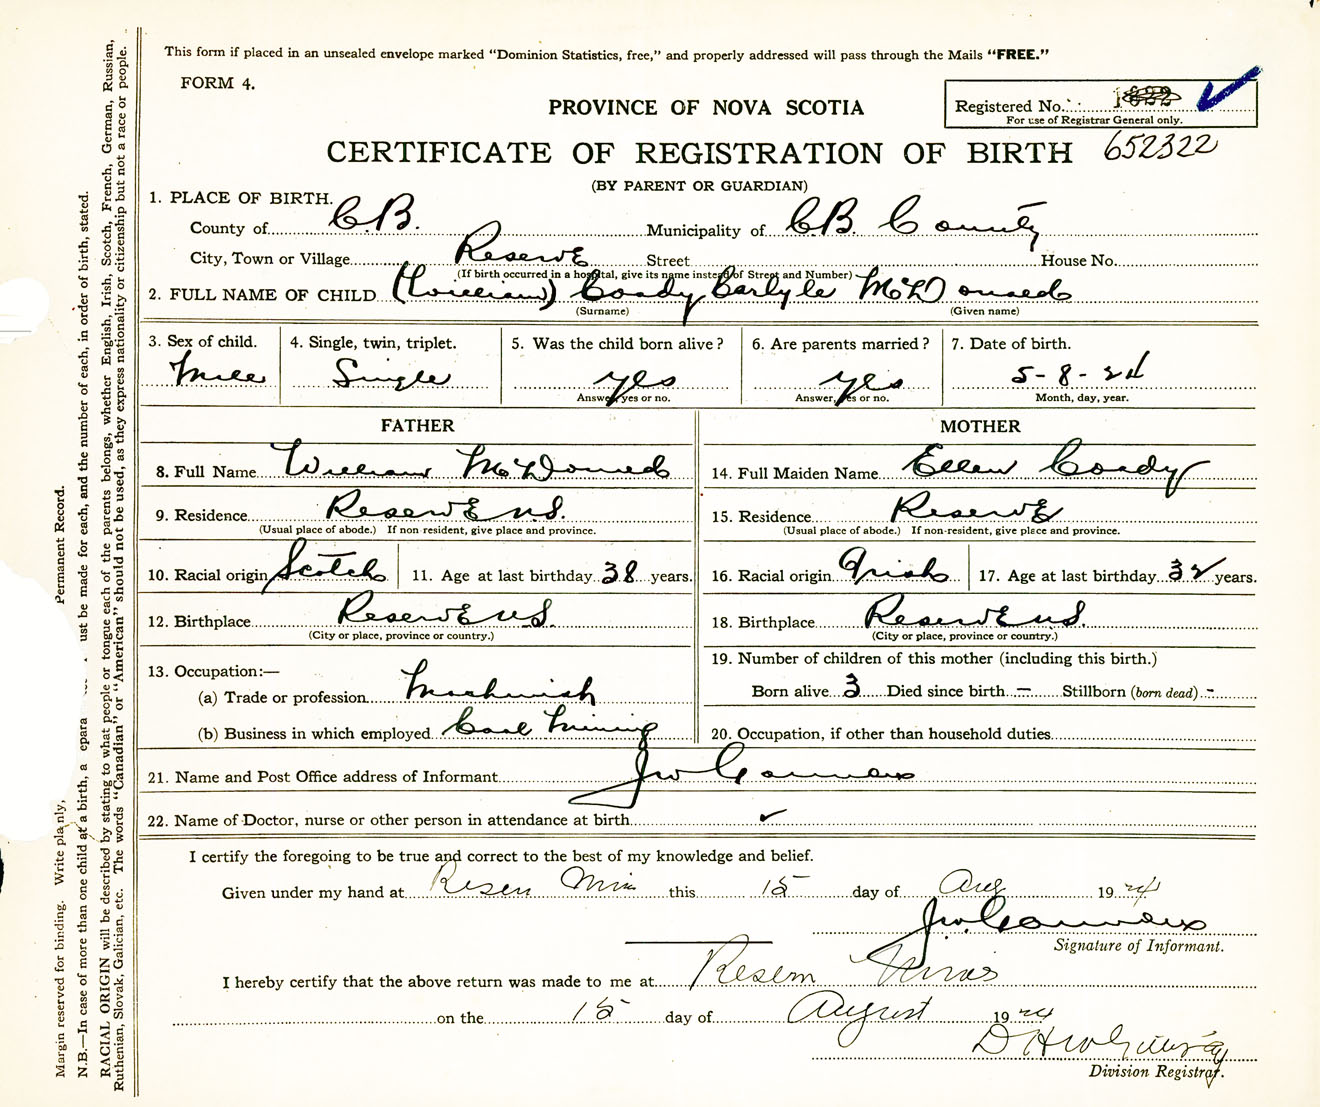 This form if placed in an unsealed envelope marked "Dominion Statistics, free," and properly addressed will pass through the Mails "FREE."
FORM 4.
PROVINCE OF NOVA SCOTIA
Registered No.
For use of Registrar General only.
CERTIFICATE OF REGISTRATION OF BIRTH 652322
(BY PARENT OR GUARDIAN)
1. PLACE OF BIRTH.
County of C.B. Municipality of C.B. County
City, Town or Village Reserve Street House No.
(If birth occurred in a hospital, give its name instead of Street and Number)
2. FULL NAME OF CHILD (William) Coady Carlyle McDonald
(Surname) (Given name)
3. Sex of child. 4. Single, twin, triplet. 5. Was the child born alive? 6. Are parents married? 7. Date of birth.
Male Single yes yes 5-8-24
Answer, yes or no. Answer, yes or no. Month, day, year.
FATHER MOTHER
8. Full Name William McDonald 14. Full Maiden Name Ellen Coady
9. Residence Reserve N.S. 15. Residence Reserve
(Usual place of abode.) If non-resident, give place and province. (Usual place of abode.) If non-resident, give place and province.
10. Racial origin Scotch 11. Age at last birthday 38 years. 16. Racial origin Irish 17. Age at last birthday 32 years.
12. Birthplace Reserve N.S. 18. Birthplace Reserve N.S.
(City or place, province or country.) (City or place, province or country.)
13. Occupation:— 19. Number of children of this mother (including this birth.)
(a) Trade or profession Machinist Born alive 3 Died since birth — Stillborn (born dead) -
(b) Business in which employed Coal Mining 20. Occupation, if other than household duties
21. Name and Post Office address of Informant
22. Name of Doctor, nurse or other person in attendance at birth ✓
I certify the foregoing to be true and correct to the best of my knowledge and belief.
Given under my hand at Reserve this 15 day of Aug 1924
Signature of Informant.
I hereby certify that the above return was made to me at Reserve Mines
on the 15 day of August 1924
Division Registrar.
Margin reserved for binding. Write plainly, Permanent Record.
N.B.—In case of more than one child at a birth, a epara ust be made for each, and the number of each, in order of birth, stated.
RACIAL ORIGIN will be described by stating to what people or tongue each of the parents belongs, whether English, Irish, Scotch, French, German, Russian,
Ruthenian, Slovak, Galician, etc. The words "Canadian" or "American" should not be used, as they express nationality or citizenship but not a race or people.